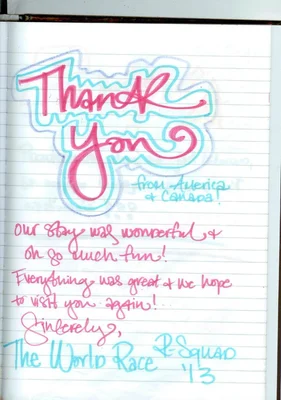 Thank
You
from America
& Canada!
Our stay was wonderful &
oh so much fun!
Everything was great & we hope
to visit you again!
Sincerely,
The World Race R-Squad
'13